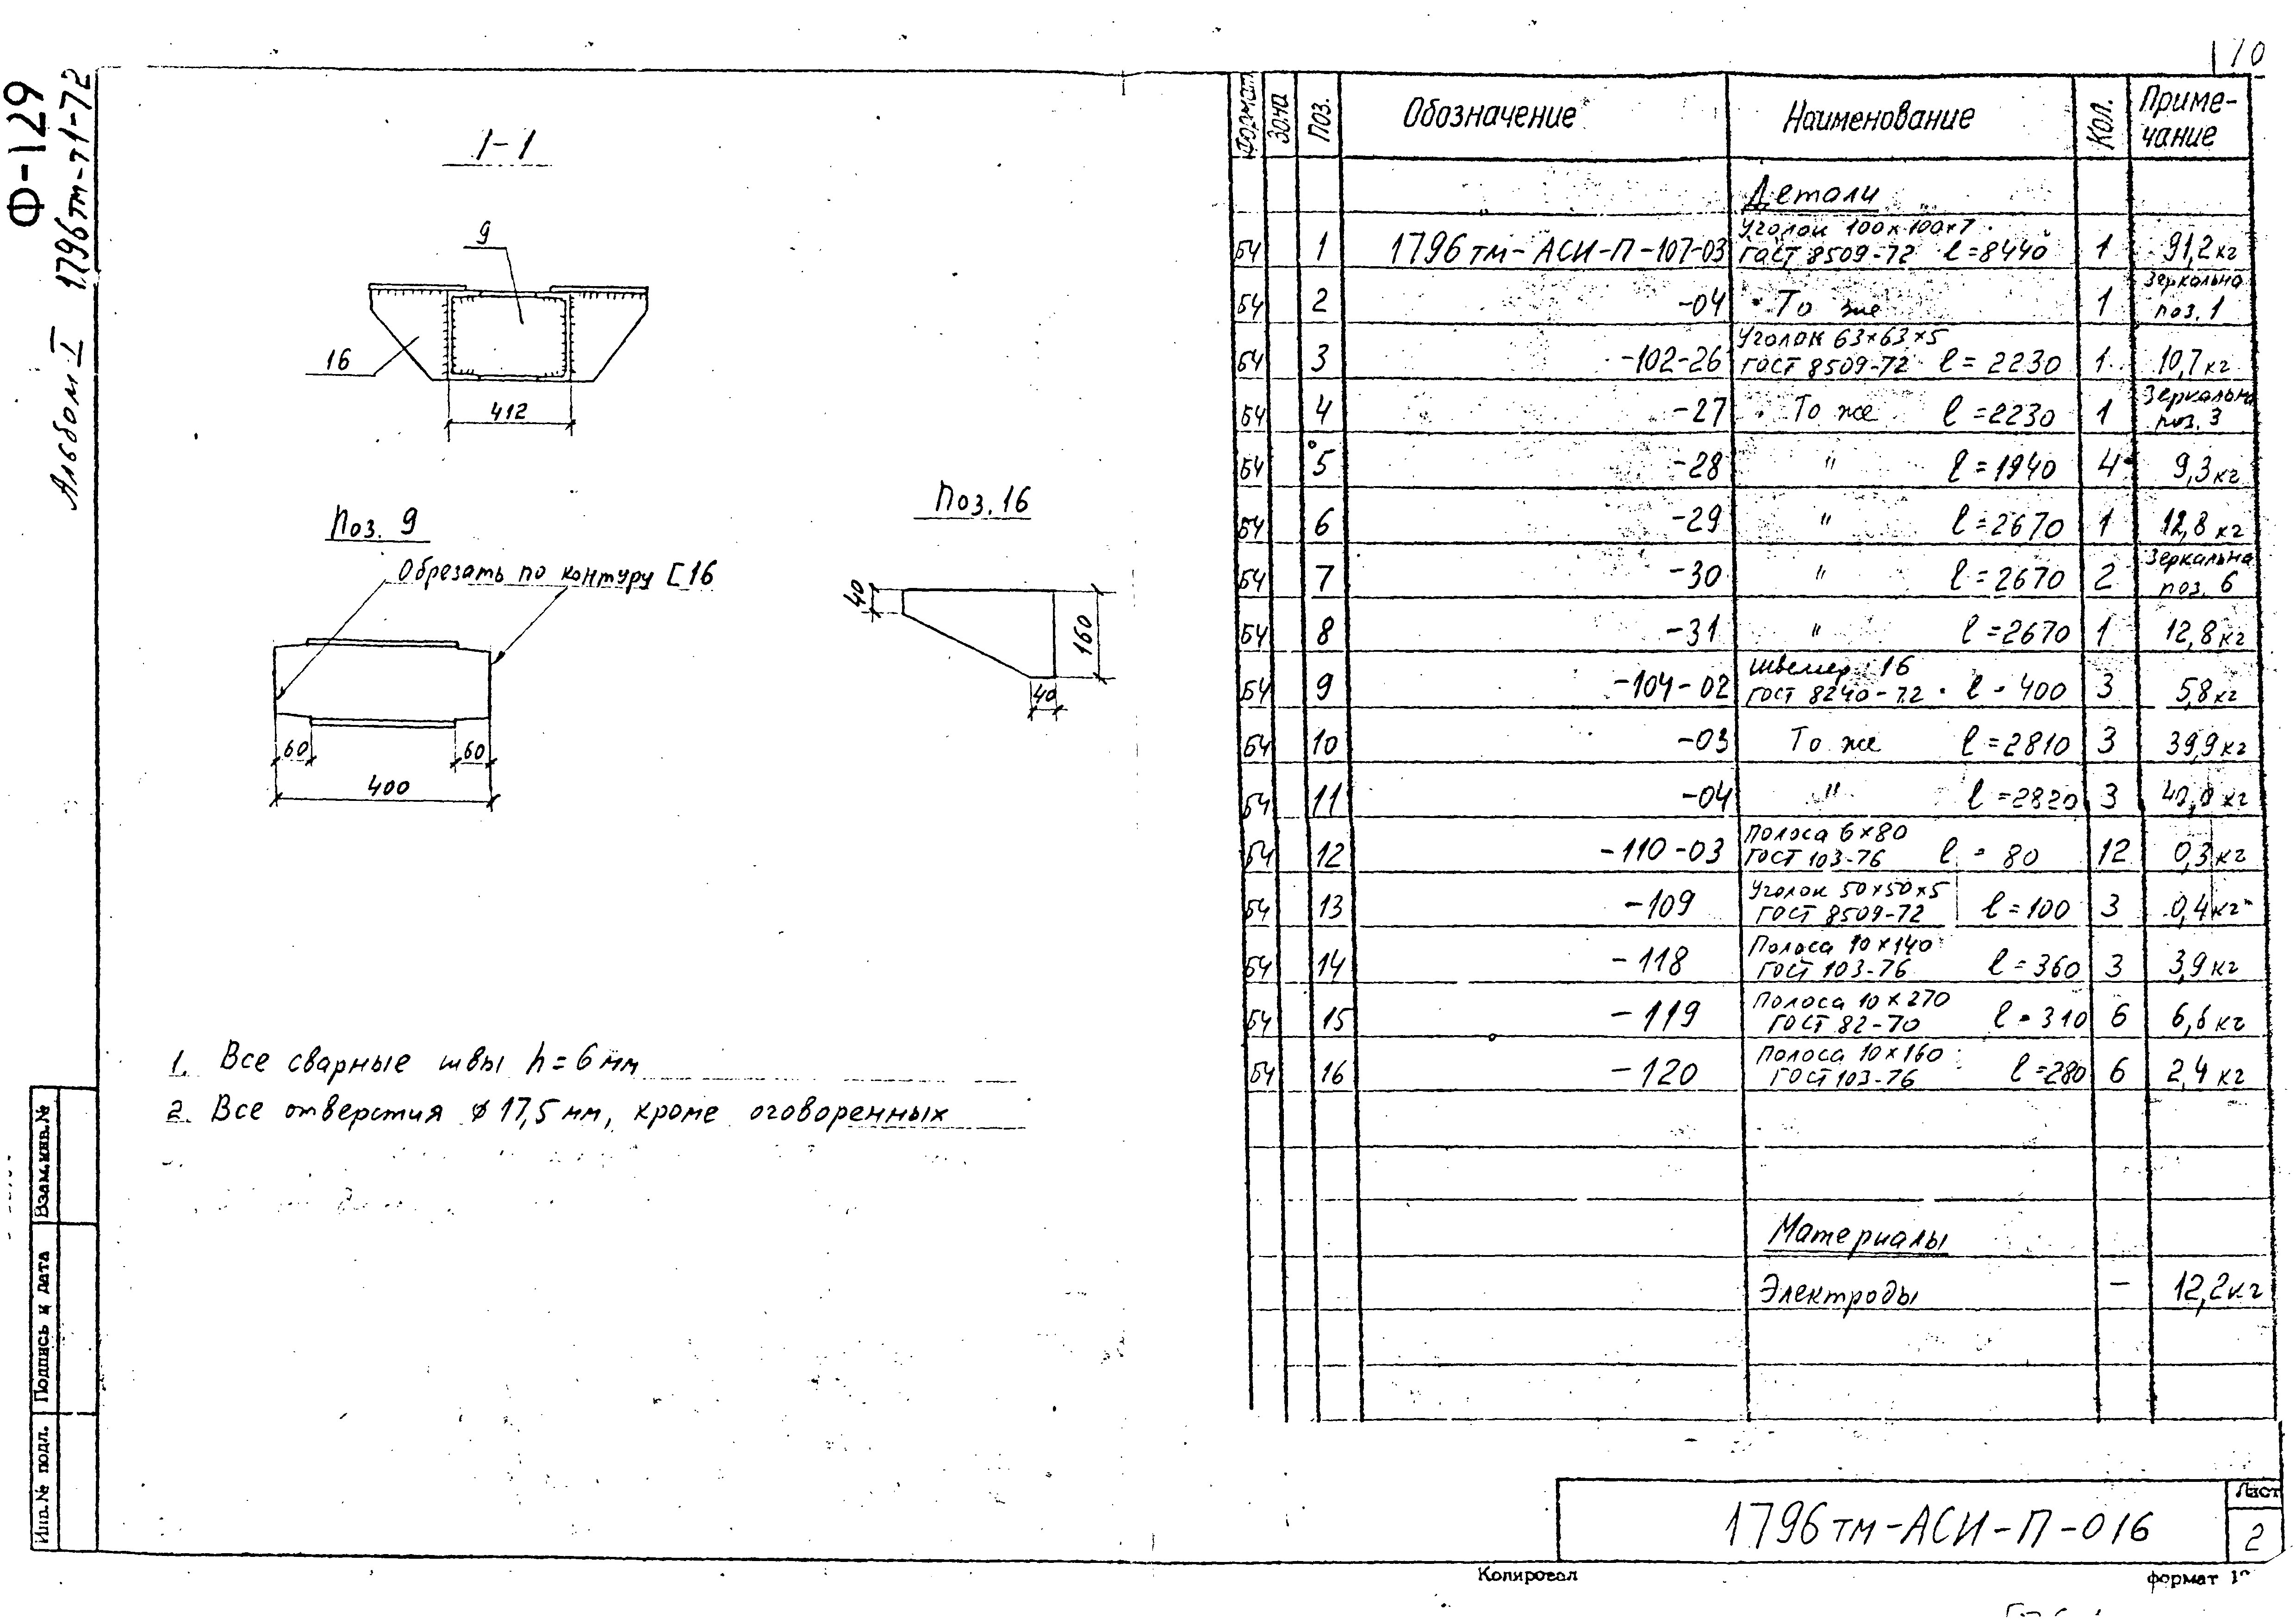 170
Ф-129
Альбом I 1796тм-т1-72
1-1
9
16
412
Поз. 9
Обрезать по контуру [16
60
60
400
Поз. 16
40
160
40
1. Все сварные швы h = 6 мм
2. Все отверстия ϕ 17,5 мм, кроме оговоренных
Формат Зона Поз. Обозначение Наименование Кол. Приме-
чание
Детали
БЧ 1 1796тм-АСИ-П-107-03 Уголок 100×100×7 ГОСТ 8509-72 ℓ=8440 1 91,2 кг
БЧ 2 -04 То же 1 Зеркальна поз. 1
БЧ 3 -102-26 Уголок 63×63×5 ГОСТ 8509-72 ℓ=2230 1 10,7 кг
БЧ 4 -27 То же ℓ=2230 1 Зеркальна поз. 3
БЧ 5 -28 " ℓ=1940 4 9,3 кг
БЧ 6 -29 " ℓ=2670 1 12,8 кг
БЧ 7 -30 " ℓ=2670 2 Зеркальна поз. 6
БЧ 8 -31 " ℓ=2670 1 12,8 кг
БЧ 9 -104-02 Швеллер 16 ГОСТ 8240-72 ℓ=400 3 5,8 кг
БЧ 10 -03 То же ℓ=2810 3 39,9 кг
БЧ 11 -04 " ℓ=2820 3 40,0 кг
БЧ 12 -110-03 Полоса 6×80 ГОСТ 103-76 ℓ=80 12 0,3 кг
БЧ 13 -109 Уголок 50×50×5 ГОСТ 8509-72 ℓ=100 3 0,4 кг
БЧ 14 -118 Полоса 10×140 ГОСТ 103-76 ℓ=360 3 3,9 кг
БЧ 15 -119 Полоса 10×270 ГОСТ 82-70 ℓ=310 6 6,6 кг
БЧ 16 -120 Полоса 10×160 ГОСТ 103-76 ℓ=280 6 2,4 кг
Материалы
Электроды - 12,2 кг
Инв.№ подл. Подпись и дата Взам.инв.№
1796тм-АСИ-П-016
Лист
2
Копировал
формат